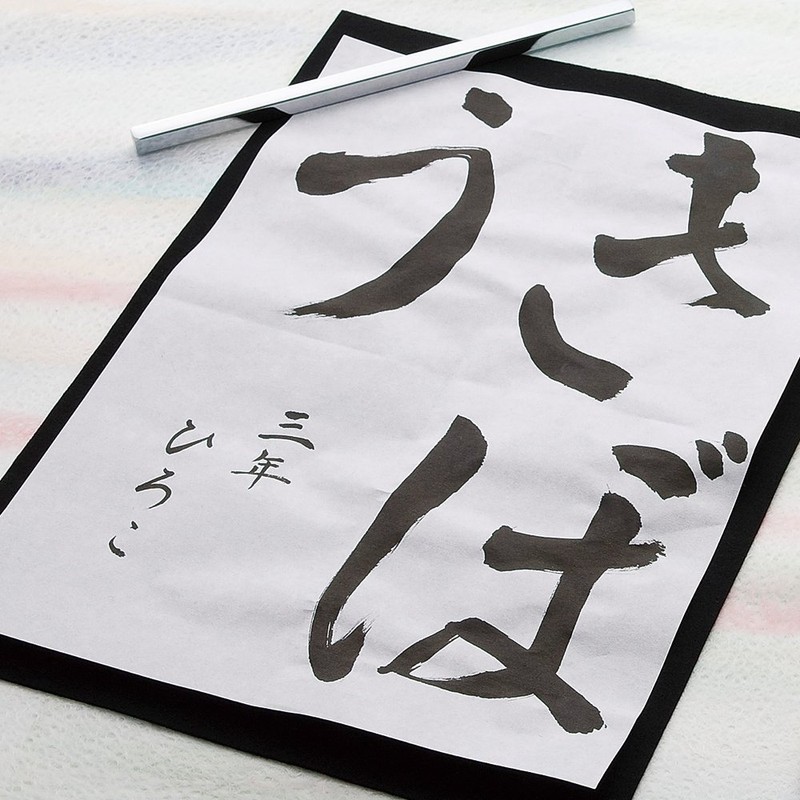 きぼ
う
三年
ひろこ